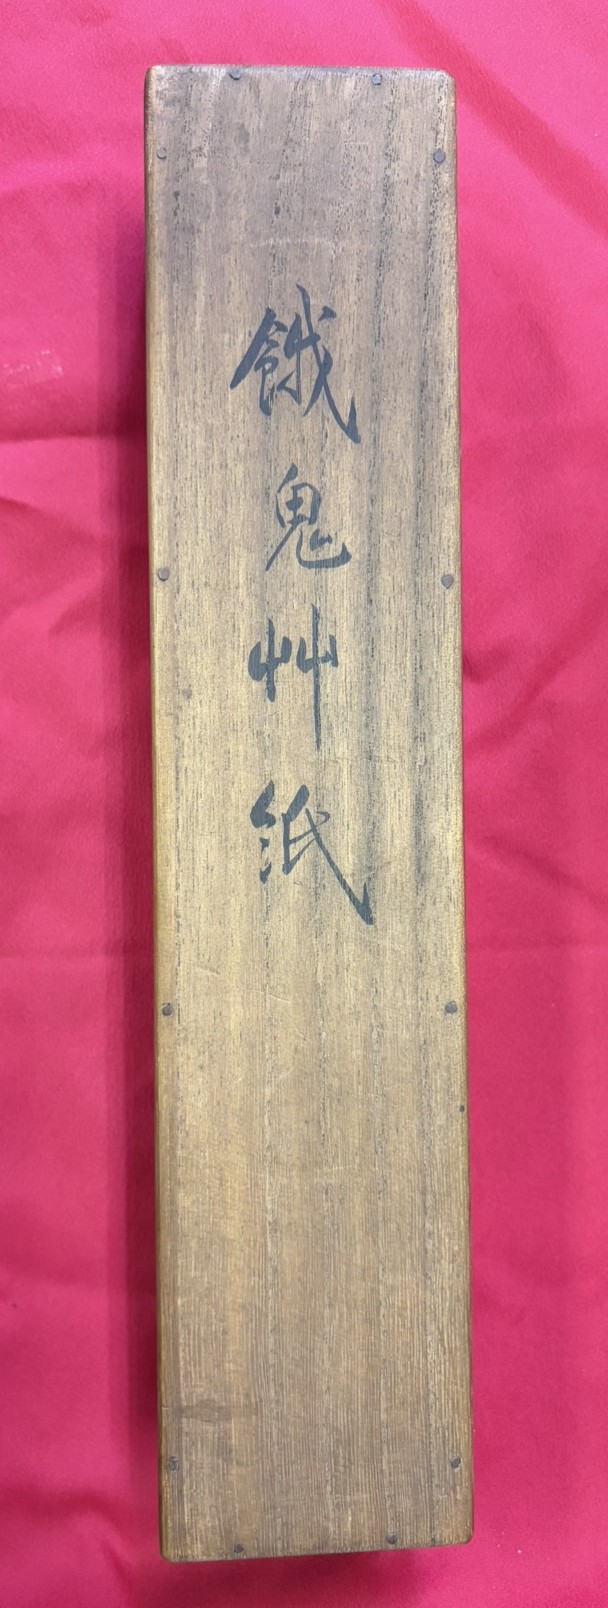 餓鬼艸紙